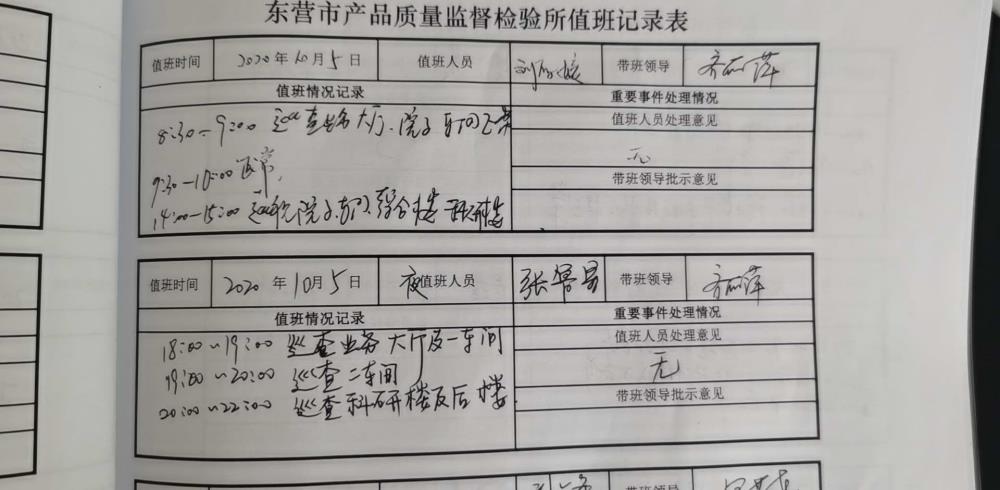 东营市产品质量监督检验所值班记录表
值班时间 2020年10月5日 值班人员 带班领导 齐丽萍
值班情况记录 重要事件处理情况
8:30-9:00 巡查业务大厅、院子、车间正常 值班人员处理意见
无
9:30-10:00 正常、 带班领导批示意见
14:00-15:00 院子、车间、综合楼 科研楼
值班时间 2020年10月5日 夜值班人员 带班领导 齐丽萍
值班情况记录 重要事件处理情况
18:00~19:00 巡查业务大厅及一车间 值班人员处理意见
19:00~20:00 巡查二车间 无
20:00~22:00 巡查科研楼及后楼 带班领导批示意见